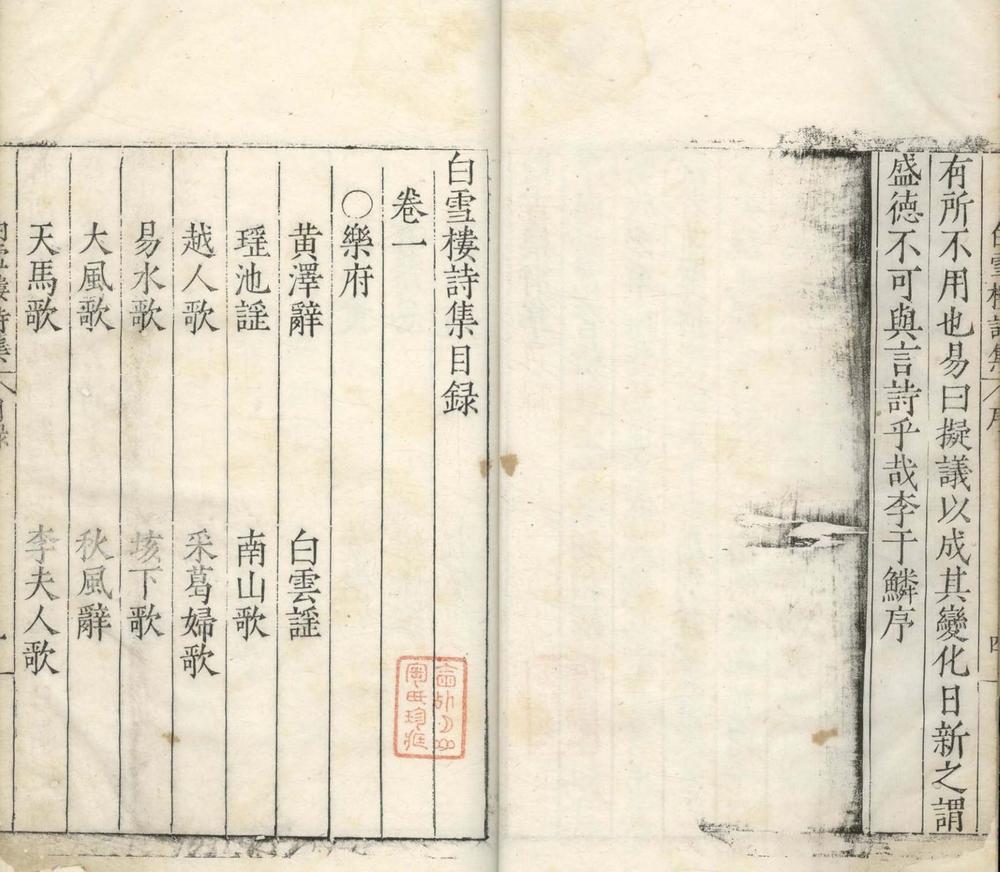 白雪樓詩集 序 四
有所不用也易曰擬議以成其變化日新之謂
盛德不可與言詩乎哉李于鱗序
白雪樓詩集目録
卷一
○樂府
黄澤辭 白雲謡
瑶池謡 南山歌
越人歌 采葛婦歌
易水歌 垓下歌
大風歌 秋風辭
天馬歌 李夫人歌
白雪樓詩集 目録 一